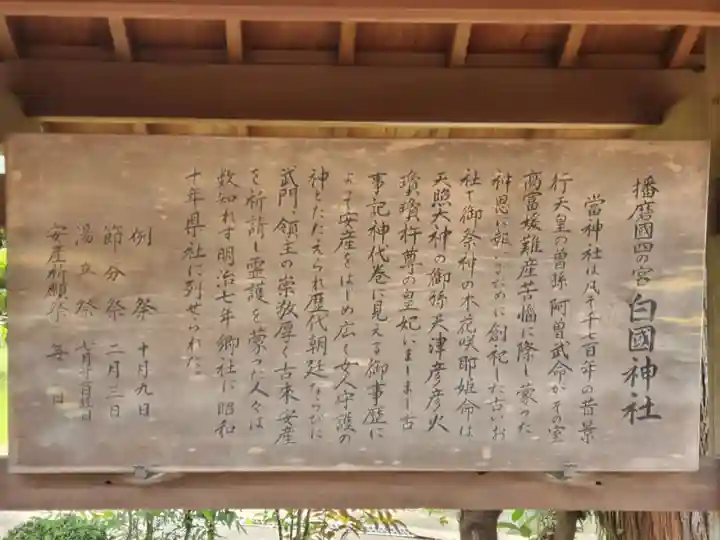 播磨國四の宮 白國神社
當神社は凡そ千七百年の昔景
行天皇の曽孫 阿曽武命がその室
高冨媛難産苦悩に際し蒙った
神恩に報いるために創祀した古いお
社で御祭神の木花咲耶姫命は
天照大神の御孫天津彦彦火
瓊瓊杵尊の皇妃にましまし古
事記神代巻に見える御事歴に
よって安産をはじめ広く女人守護の
神とたたえられ歴代朝廷ならびに
武門・領主の崇敬厚く古来安産
を祈請し霊護を蒙った人々は
数知れず明治七年郷社に昭和
十年県社に列せられた。
例祭 十月九日
節分祭 二月三日
湯立祭 七月
安産祈願祭 毎日